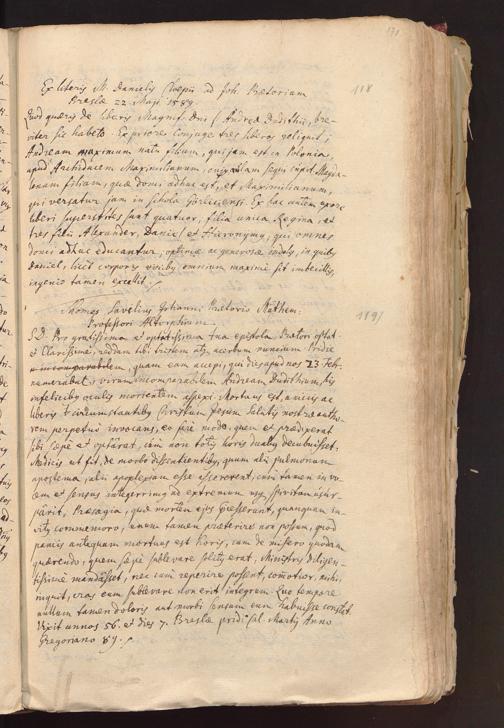 171
Ex literis M. Danielis Cloepii ad Joh. Prætorium 118
Breslæ 22 Maji 1589.
Quod quæris de liberis Magnif. Dni Andreæ Dudithii, bre-
viter sic habeto. Ex priore conjuge tres liberos reliquit;
Andream maximum natu filium, qui jam est in Polonia,
apud Archiducem Maximilianum,
lonam filiam, quæ domi adhuc est, et Maximilianum,
qui versatur jam in schola Gorlicensi. Ex hac autem uxore
liberi superstites sunt quatuor, filia unica Regina, et
tres filii Alexander, Daniel et Hieronymus, qui omnes
domi adhuc educantur, optimæ ac generosæ indolis, in quibus
Daniel, licet corporis viribus omnium maxime sit imbecillis,
ingenio tamen excellit.
Thomas Savelius Johanni Prætorio Mathem. 119
Professori Altorphino.
S.D. Pro gratissima et optatissima tua epistola, Prætori
et Clarissime, reddam tibi tristem atque acerbum nuncium. Pridie
quam eam accepi, qui dies apud nos 23 Feb.
numerabatur, virum incomparabilem Andream Dudithium, his
infelicibus oculis morientem aspexi. Mortuus est, amicis ac
liberis circumstantibus Christum Jesum Salutis nostræ autho-
rem perpetuo invocans, eo fere modo, quem et prædixerat
sibi sæpe et optarat, cum non totis horis duabus decubuisset.
Medicis ut fit, de morbo dissentientibus, quum alii pulmonum
apostema, alii apoplexiam esse assererent, cum tamen in vo-
cem et sensus integerrimus ad extremum usque spiritum
Præsagia, quæ mortem ejus præcesserunt, quanquam in-
vitus commemoro, unum tamen præterire non possum, quod
paucis antequam mortuus est horis, cum de misero quodam
quærendo, quem sæpe sublevare solitus erat, Ministris diligen-
tissime mandasset, nec eum reperire possent, commotior, mihi,
inquit, cras eum sublevare non erit integrum. Quo tempore
nullum tamen doloris aut morbi sensum eum habuisse constat.
Vixit annos 56. et dies 7. Breslæ prid. Cal. Martij Anno
Gregoriano 89.